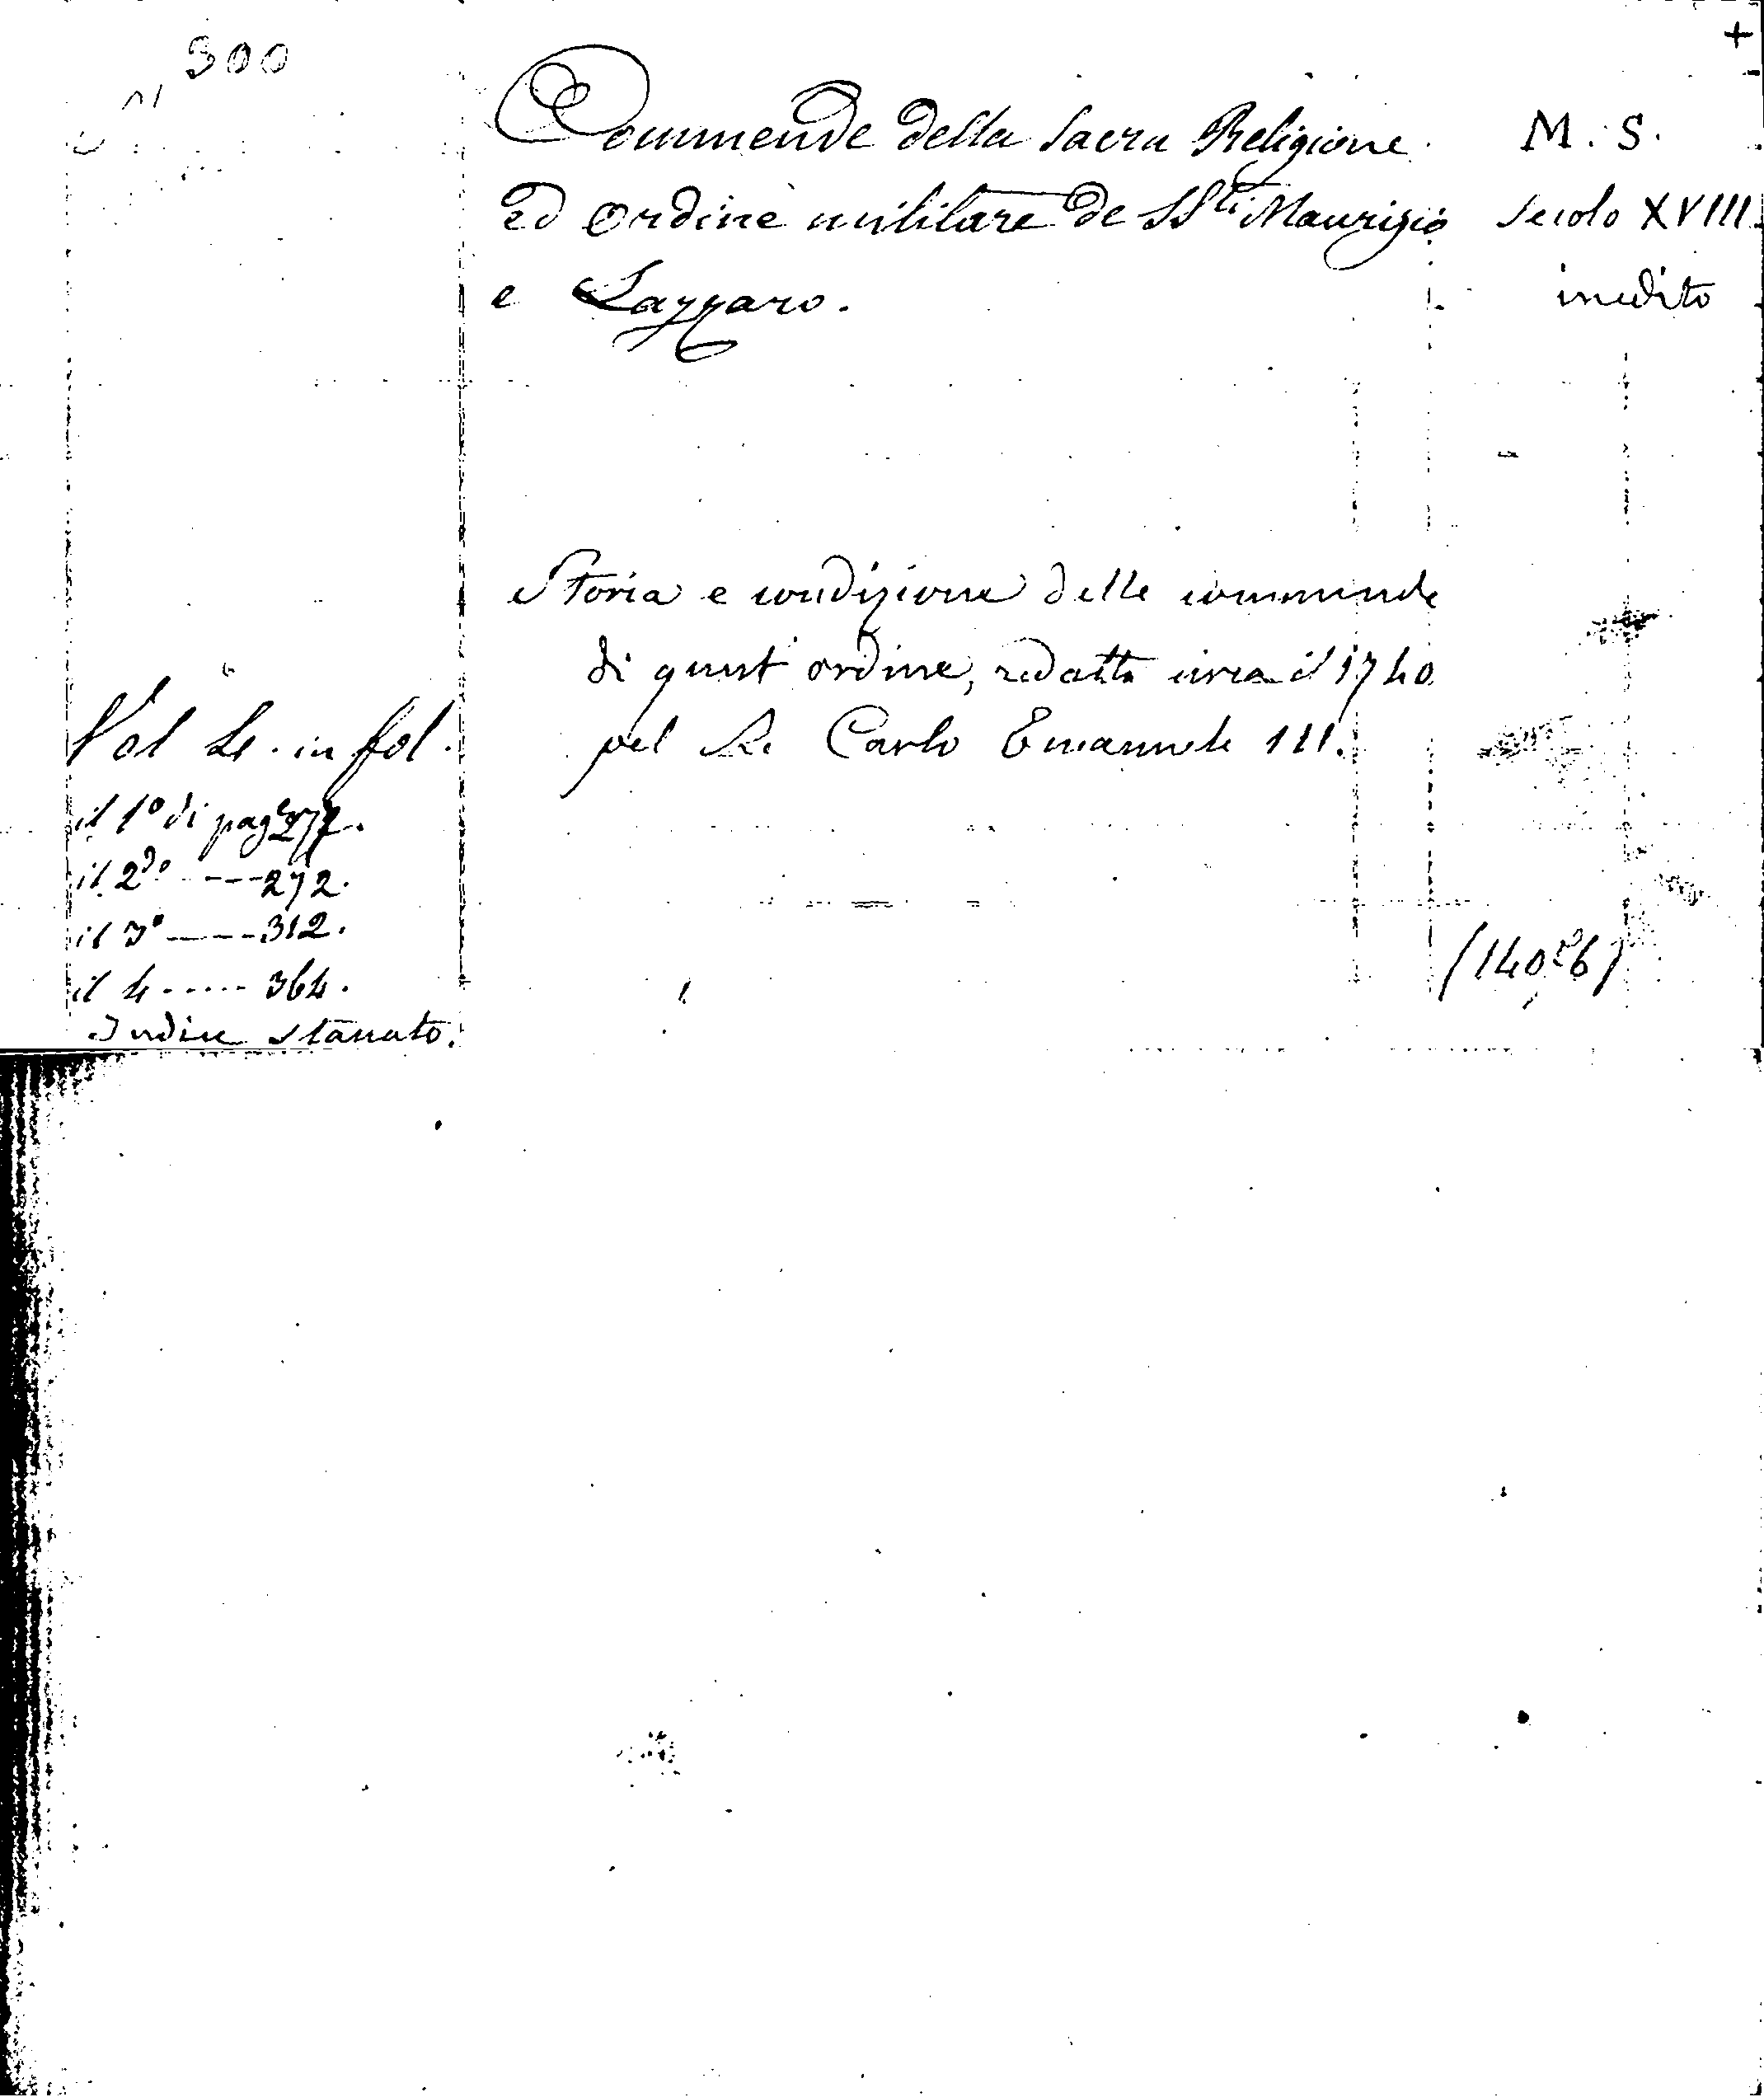 300
+
Commende della Sacra Religione
ed Ordine militare de SS.ti Maurizio
e Lazzaro.
M. S.
Secolo XVIII
inedito
Storia e condizione delle commende
di quest' ordine, redatta circa il 1740
pel Re Carlo Emanuele III.
Vol 4. in fol.
il 1° di pag.e 277.
il 2do ---272.
il 3° ----312.
il 4 ----- 364.
Indice staccato.